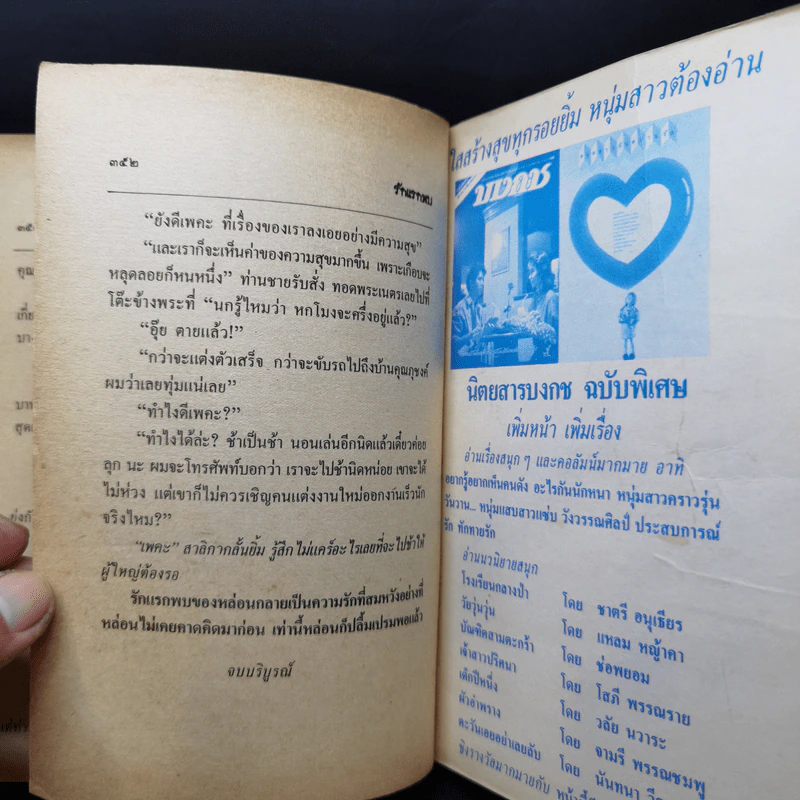 ๓๕๒
รักแรกพบ
“ยังดีเพคะ ที่เรื่องของเราลงเอยอย่างมีความสุข”
“และเราก็จะเห็นค่าของความสุขมากขึ้น เพราะเกือบจะ
หลุดลอยก็หนหนึ่ง” ท่านชายรับสั่ง ทอดพระเนตรเลยไปที่
โต๊ะข้างพระที่ “นกรู้ไหมว่า หกโมงจะครึ่งอยู่แล้ว?”
“อุ๊ย ตายแล้ว!”
“กว่าจะแต่งตัวเสร็จ กว่าจะขับรถไปถึงบ้านคุณภุชงค์
ผมว่าเลยทุ่มแน่เลย”
“ทำไงดีเพคะ?”
“ทำไงได้ล่ะ? ช้าเป็นช้า นอนเล่นอีกนิดแล้วเดี๋ยวค่อย
ลุก นะ ผมจะโทรศัพท์บอกว่า เราจะไปช้านิดหน่อย เขาจะได้
ไม่ห่วง แต่เขาก็ไม่ควรเชิญคนแต่งงานใหม่ออกงานเร็วนัก
จริงไหม?”
“เพคะ” สาลิกากลั้นยิ้ม รู้สึกไม่แคร์อะไรเลยที่จะไปช้าให้
ผู้ใหญ่ต้องรอ
รักแรกพบของหล่อนกลายเป็นความรักที่สมหวังอย่างที่
หล่อนไม่เคยคาดคิดมาก่อน เท่านี้หล่อนก็ปลื้มเปรมพอแล้ว
จบบริบูรณ์
ใสสร้างสุขทุกรอยยิ้ม หนุ่มสาวต้องอ่าน
บงกช
นิตยสารบงกช ฉบับพิเศษ
เพิ่มหน้า เพิ่มเรื่อง
อ่านเรื่องสนุก ๆ และคอลัมน์มากมาย อาทิ
อยากรู้อยากเห็นคนดัง อะไรกันนักหนา หนุ่มสาวคราวรุ่น
วันวาน... หนุ่มแสบสาวแซ่บ วังวรรณศิลป์ ประสบการณ์
รัก ทักทายรัก
อ่านนวนิยายสนุก
โรงเรียนกลางป่า โดย ชาตรี อนุเธียร
วัยวุ่นวุ่น โดย แหลม หญ้าคา
บัณฑิตสามตะกร้า โดย ช่อพยอม
เจ้าสาวปริศนา โดย โสภี พรรณราย
เด็กปีหนึ่ง โดย วลัย นวาระ
ผัวอำพราง โดย จามรี พรรณชมพู
ตะวันเอยอย่าเลยลับ โดย นันทนา
ชิงรางวัลมากมายกับ